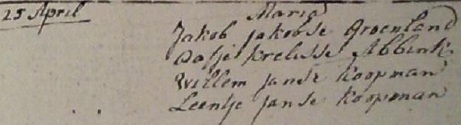 25 April Maria
Jakob Jakobse Groenland
Aafje Krelisse Abbink
Willem Janse Koopman
Leentje Janse Koopman